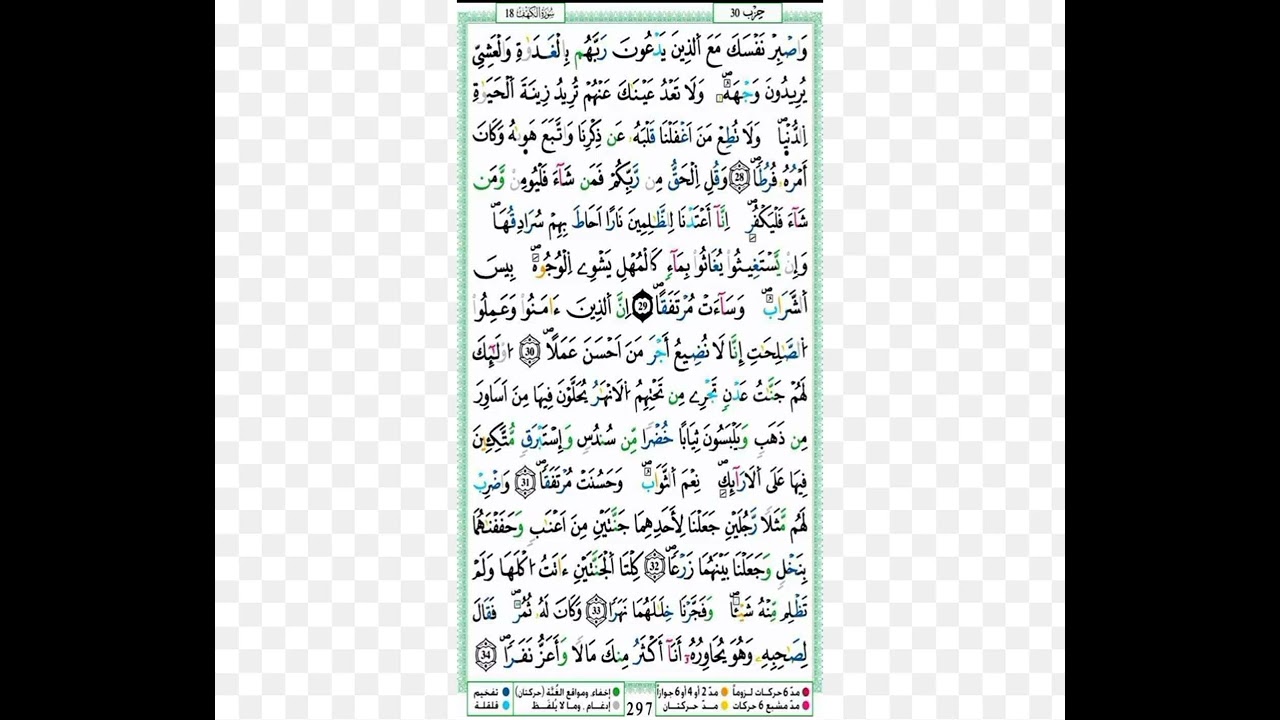 سُورَةُ الكَهْفِ 18
حِزْب 30
وَاصْبِرْ نَفْسَكَ مَعَ اَ۬لذِينَ يَدْعُونَ رَبَّهُم بِالْغَدَوٰةِ وَالْعَشِيِّ
يُرِيدُونَ وَجْهَهُۥۖ وَلَا تَعْدُ عَيْنَٰكَ عَنْهُمْ تُرِيدُ زِينَةَ اَ۬لْحَيَوٰةِ
اِ۬لدُّنْي۪اۖ وَلَا تُطِعْ مَنَ اَغْفَلْنَا قَلْبَهُۥ عَن ذِكْرِنَا وَاتَّبَعَ هَو۪ىٰهُ وَكَانَ
أَمْرُهُۥ فُرُطاٗۖ 28 وَقُلِ اِ۬لْحَقُّ مِن رَّبِّكُمْ فَمَن شَآءَ فَلْيُومِنْ وَّمَن
شَآءَ فَلْيَكْفُرِۖ اِنَّآ أَعْتَدْنَا لِلظَّٰلِمِينَ نَاراً اَحَاطَ بِهِمْ سُرَادِقُهَاۖ
وَإِنْ يَّسْتَغِيثُواْ يُغَاثُواْ بِمَآءٖ كَالْمُهْلِ يَشْوِے اِ۬لْوُجُوهَۖ بِيسَ
اَ۬لشَّرَابُۖ وَسَآءَتْ مُرْتَفَقاًۖ 29 اِنَّ اَ۬لذِينَ ءَامَنُواْ وَعَمِلُواْ
اُ۬لصَّٰلِحَٰتِ إِنَّا لَا نُضِيعُ أَجْرَ مَنَ اَحْسَنَ عَمَلاًۖ 30 اُوْلَٰٓئِكَ
لَهُمْ جَنَّٰتُ عَدْنٖ تَجْرِے مِن تَحْتِهِمُ اُ۬لَانْهَٰرُ يُحَلَّوْنَ فِيهَا مِنَ اَسَاوِرَ
مِن ذَهَبٖ وَيَلْبَسُونَ ثِيَاباً خُضْراٗ مِّن سُندُسٖ وَإِسْتَبْرَقٖ مُّتَّكِـِٕينَ
فِيهَا عَلَى اَ۬لَارَآئِكِۖ نِعْمَ اَ۬لثَّوَابُۖ وَحَسُنَتْ مُرْتَفَقاٗۖ 31 وَاضْرِبْ
لَهُم مَّثَلاٗ رَّجُلَيْنِ جَعَلْنَا لِأَحَدِهِمَا جَنَّتَيْنِ مِنَ اَعْنَٰبٖ وَحَفَفْنَٰهُمَا
بِنَخْلٖ وَجَعَلْنَا بَيْنَهُمَا زَرْعاٗۖ 32 كِلْتَا اَ۬لْجَنَّتَيْنِ ءَاتَتُ ا۟كْلَهَا وَلَمْ
تَظْلِم مِّنْهُ شَيْـٔاٗۖ وَفَجَّرْنَا خِلَٰلَهُمَا نَهَراٗ 33 وَكَانَ لَهُۥ ثُمُرٞۖ فَقَالَ
لِصَٰحِبِهِۦ وَهُوَ يُحَاوِرُهُۥٓ أَنَآ أَكْثَرُ مِنكَ مَالاٗ وَأَعَزُّ نَفَراٗۖ 34
مدّ 6 حركات لزوماً مدّ 2 أو 4 أو 6 جوازاً
مدّ مشبع 6 حركات مدّ حركتان
297
إخفاء، ومواقع الغُنَّة (حركتان) تفخيم
إدغام، وما لا يُلفَظ قلقلة